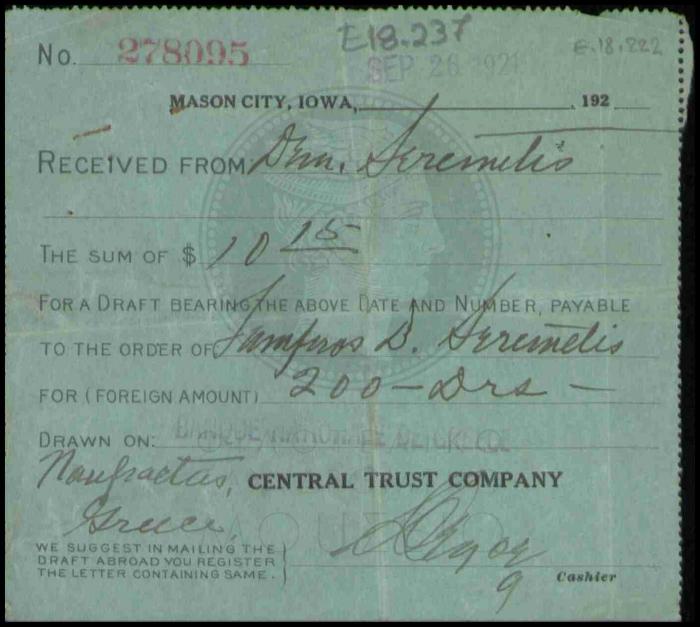 E18.237
No. 278095 E.18.222
SEP 26 1921
MASON CITY, IOWA, 192
RECEIVED FROM Dem. Seremetis
THE SUM OF $ 10 15
FOR A DRAFT BEARING THE ABOVE DATE AND NUMBER, PAYABLE
TO THE ORDER OF Lampros D. Seremetis
FOR (FOREIGN AMOUNT) 200 — Drs —
DRAWN ON: BANQUE NATIONALE DE GRECE
Naufractus, CENTRAL TRUST COMPANY
Greece,
WE SUGGEST IN MAILING THE
DRAFT ABROAD YOU REGISTER
THE LETTER CONTAINING SAME.
9 Cashier